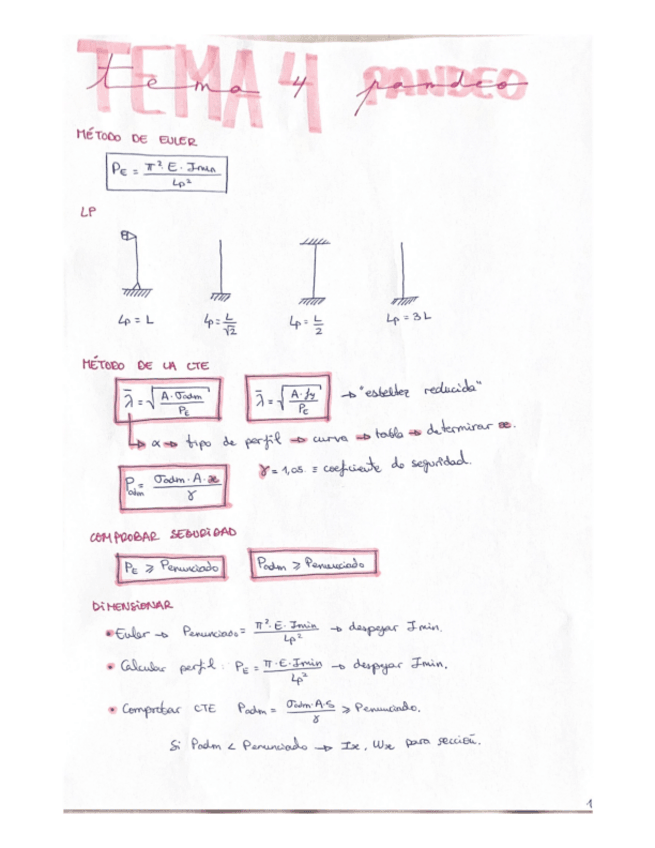 TEMA 4 PANDEO
tema 4 pandeo
MÉTODO DE EULER
P_E = π²·E·Imin / Lp²
LP
Lp = L
Lp = L/√2
Lp = L/2
Lp = 3L
MÉTODO DE LA CTE
λ̄ = √(A·σadm / P_E)
λ̄ = √(A·fy / P_E) → "esbeltez reducida"
α → tipo de perfil → curva → tabla → determinar æ.
Padm = σadm·A·æ / γ
γ = 1,05 = coeficiente de seguridad.
COMPROBAR SEGURIDAD
P_E ⩾ Penunciado
Padm ⩾ Penunciado
DIMENSIONAR
• Euler → Penunciado = π²·E·Imin / Lp² → despejar Imin.
• Calcular perfil: P_E = π·E·Imin / Lp² → despejar Imin.
• Comprobar CTE Padm = σadm·A·S / γ ⩾ Penunciado.
Si Padm < Penunciado → Ix, Wx para sección.
1